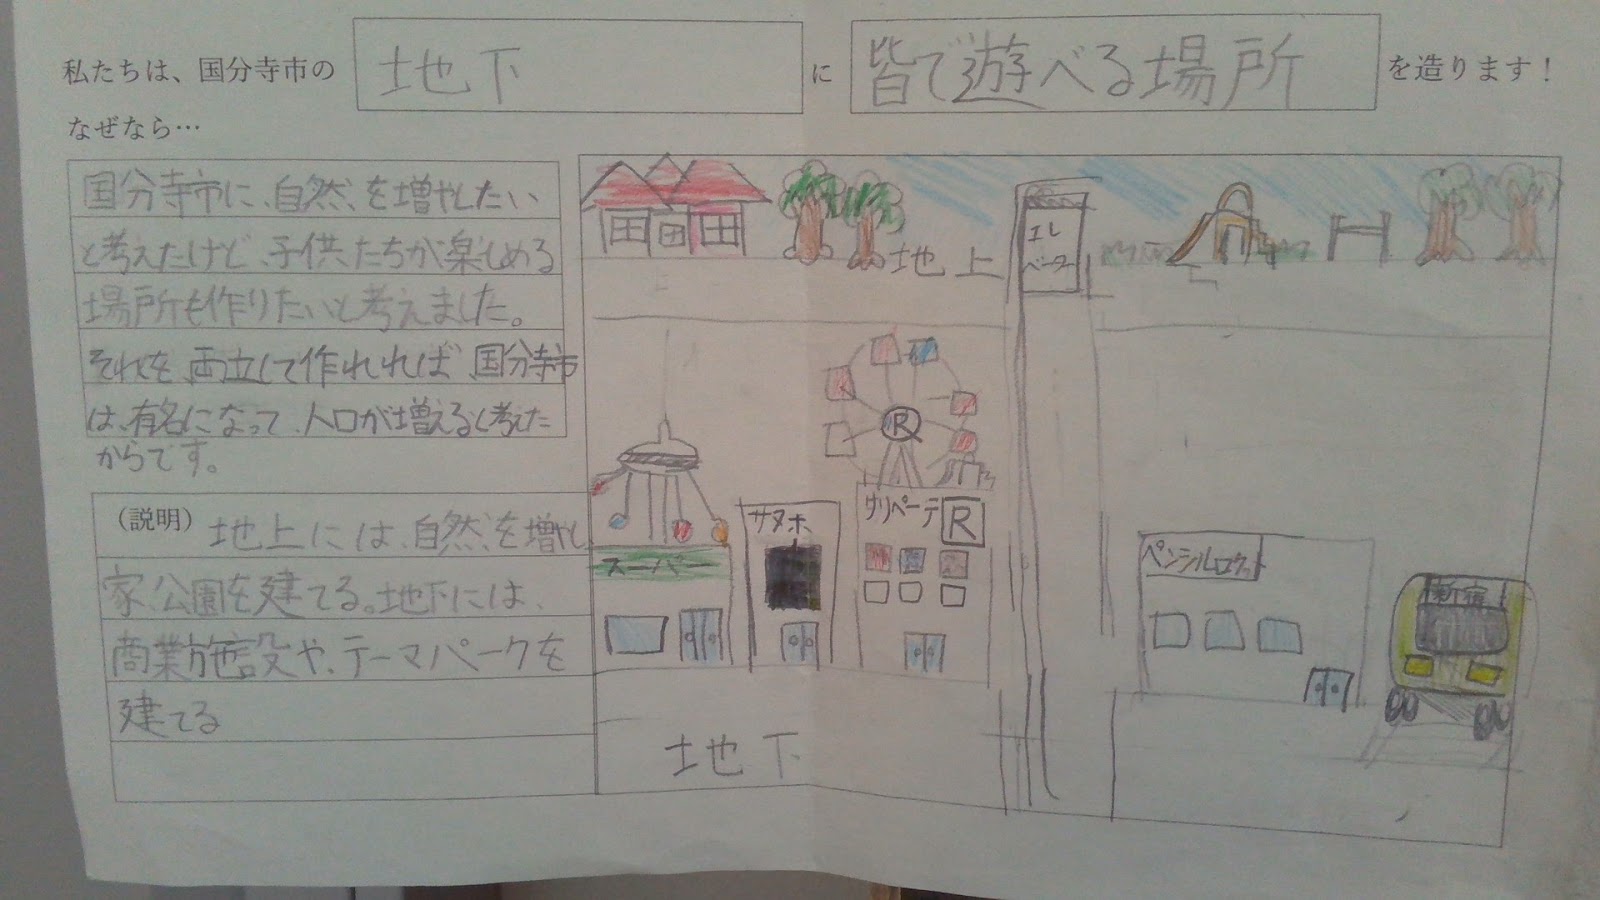 私たちは、国分寺市の 地下 に 皆で遊べる場所 を造ります！
なぜなら…
国分寺市に、自然、を増やしたい
と考えたけど、子供たちが楽しめる
場所も作りたいと考えました。
それを、両立して作れれば、国分寺市
は、有名になって、人口が増えると考えた
からです。
（説明）地上には、自然、を増やし
家、公園を建てる。地下には、
商業施設や、テーマパークを
建てる
地上
エレ
ベーター
R
スーパー
サヌホ
R
ペンシルロケット
新宿
地下